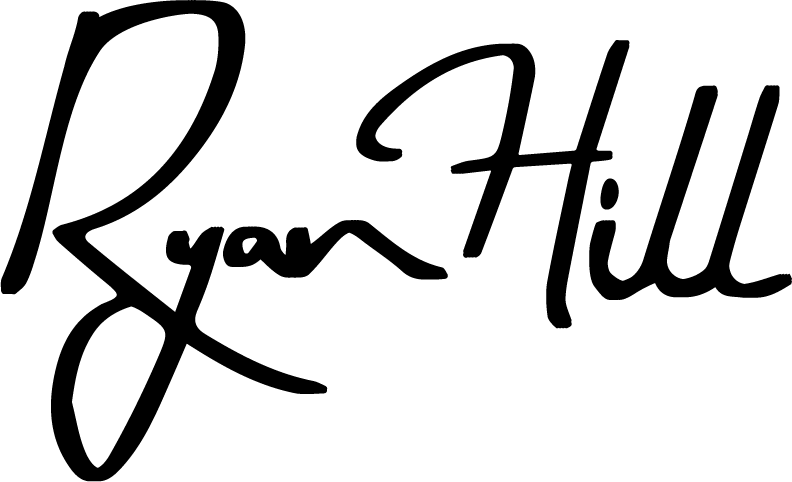 Ryan Hill